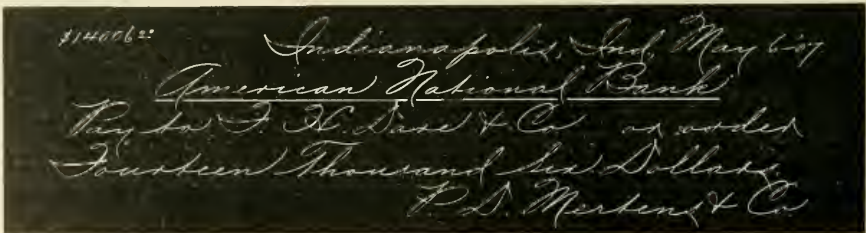 $14006 00 Indianapolis, Ind. May 6 '07
American National Bank
Pay to F. H. Dase & Co or order
Fourteen Thousand Six Dollars.
P. D. Mertens & Co